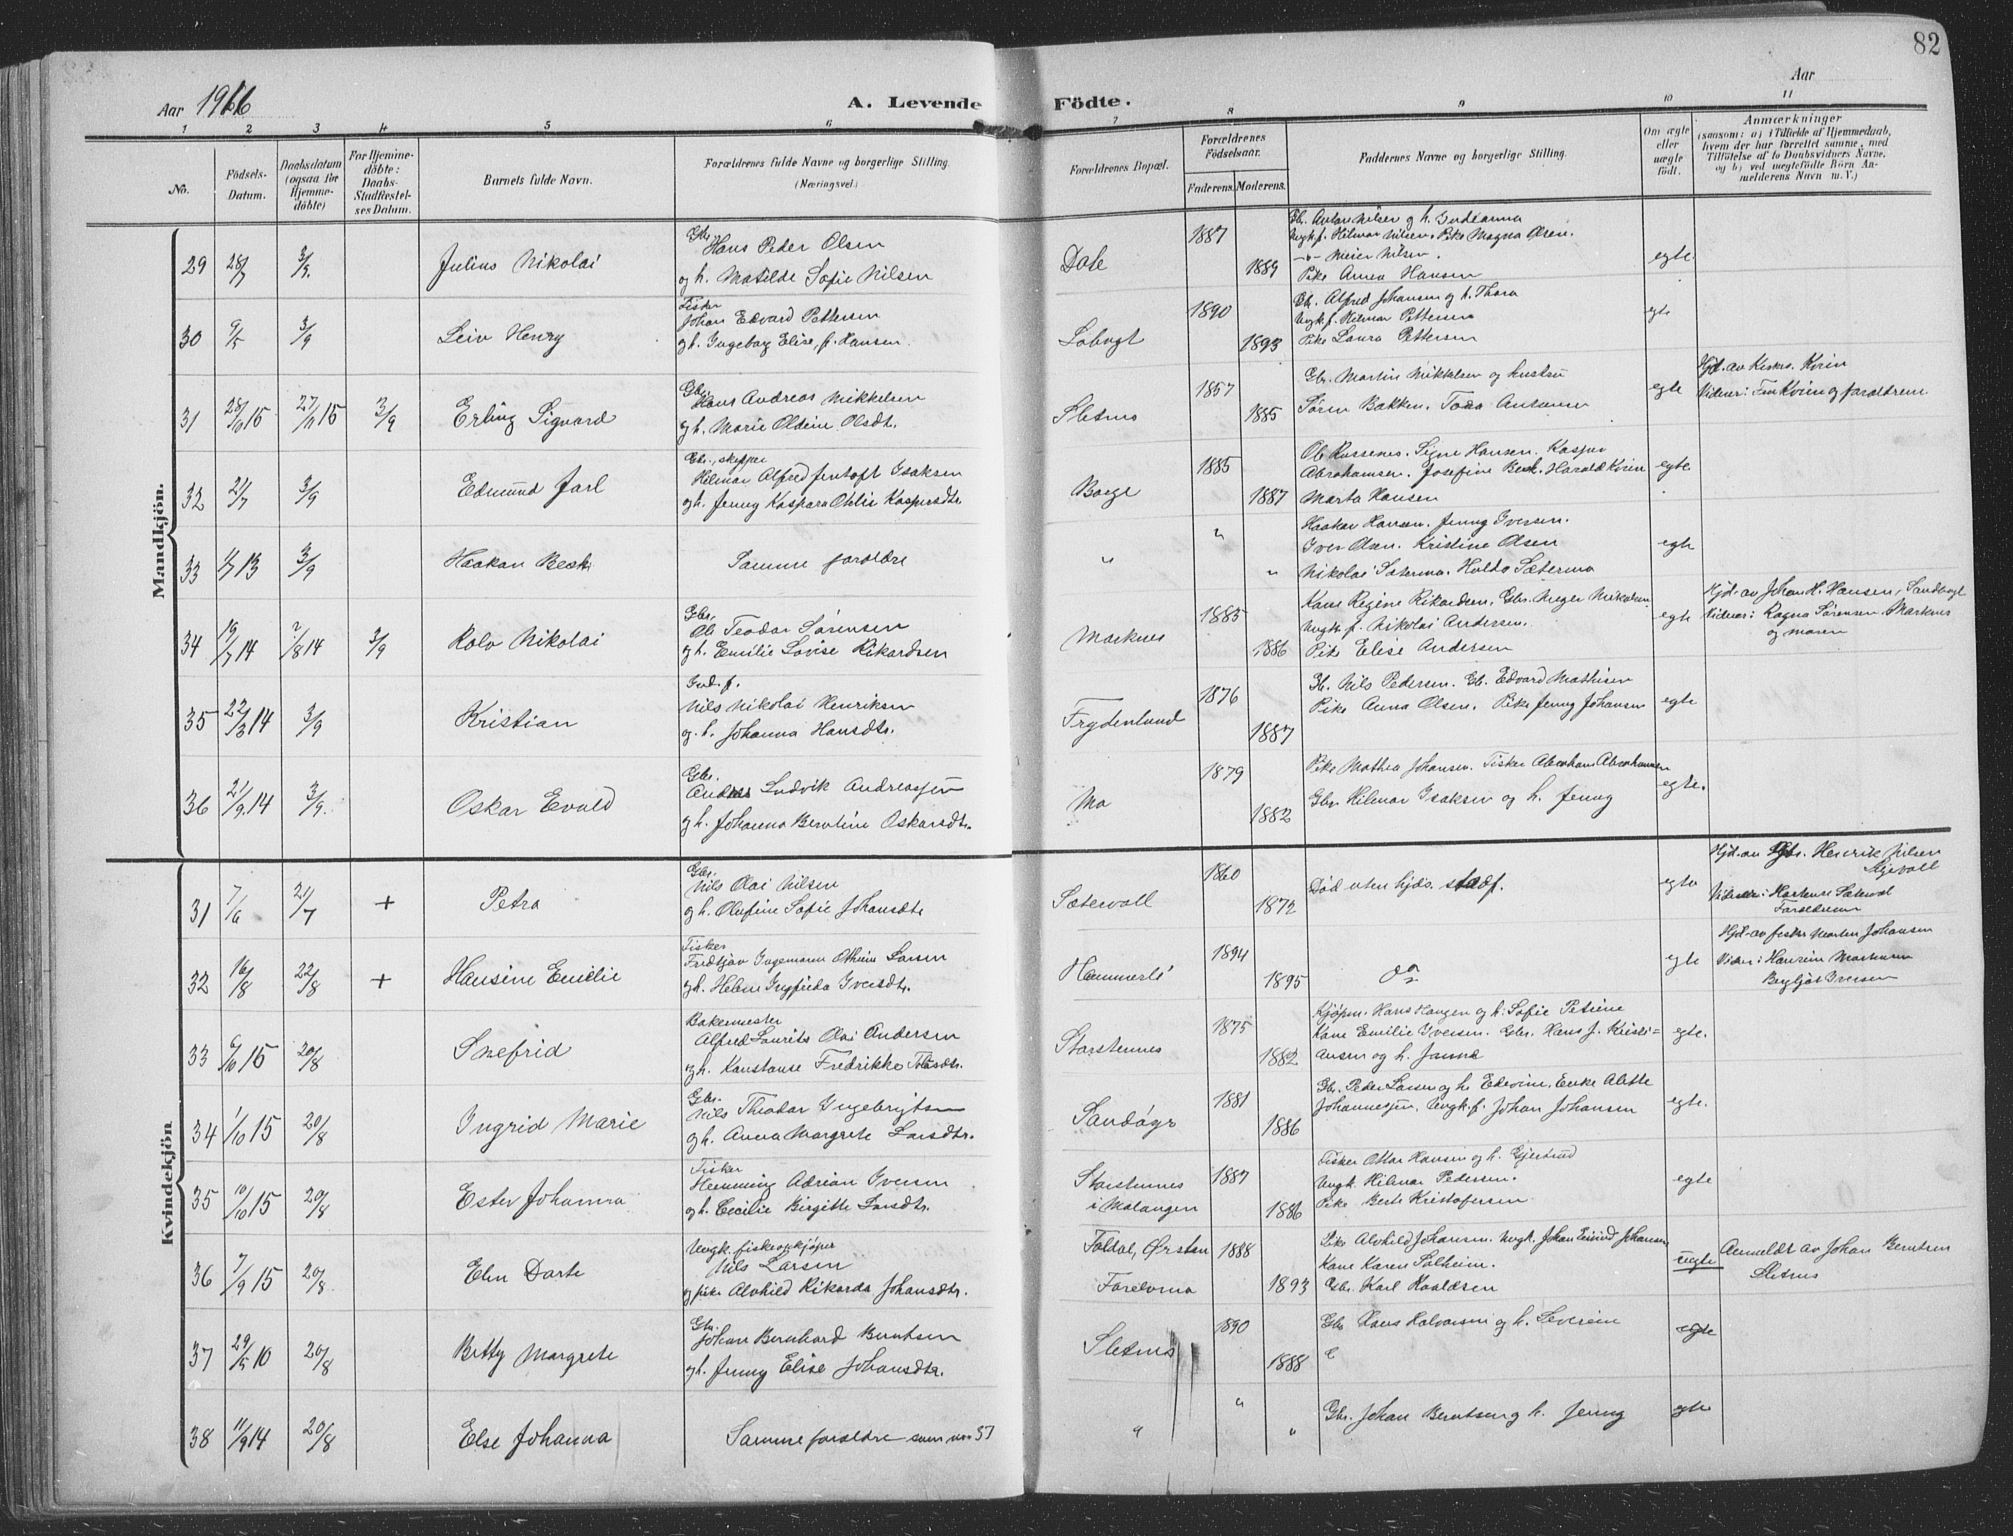 82
Aar 1916
A. Levende Födte.
Aar
1 2 3 4 5 6 7 8 9 10 11
No.
Födsels-Datum.
Daabsdatum (ogsaa for Hjemme-döbte)
For Hjemme-döbte: Daabs-Stadfæstel-ses Datum.
Barnets fulde Navn.
Forældrenes fulde Navne og borgerlige Stilling. (Næringsvei.)
Forældrenes Bopæl.
Forældrenes Födselsaar.
Faderens. Moderens.
Faddernes Navne og borgerlige Stilling.
Om ægte eller uægte födt.
Anmærkninger (saasom: a) i Tilfælde af Hjemmedaab, hvem der har forrettet samme, med Tilföielse af to Daabsvidners Navne, og b) ved uægtefödte Börn An-melderens Navn m. V.)
Mandkjön.
29 28/7 3/9 Julius Nikolai
Gbr. Hans Peder Olsen
og h. Matilde Sofie Nilsen
Dale 1887 1889
Gb. Anton Nilsen og h. Indianna
Ungk.f. Hilmar Nilsen. Pike Magna Olsen.
-"- Meier Nilsen.
Pike Anna Hansen
egte
30 9/5 3/9 Leiv Henry
Fisker
Johan Edvard Pettersen
og h. Ingeborg Elise, f. Hansen
1890 1893
Gb. Alfred Johansen og h. Thora
Ungk.f. Hilmar Pettersen
Pike Laura Pettersen
egte
31 28/10 15 27/11 15 3/9 Erling Sigvard
Gbr.
Hans Andreas Mikkelsen
og h. Marie Oldine Olsdt.
Sletnes 1857 1885
Gbr. Martin Mikkelsen og hustru
Søren Bakken. Tora Antonsen
egte
Hjd. av Kirkes. Kvien
Vidner: Fru Kvien og foreldrene
32 21/7 3/9 Edmund Jarl
Gbr., skipper
Hilmar Alfred Jentoft Isaksen
og h. Jenny Kaspara Otelie Kaspersdtr.
Borge 1885 1887
Ole Russenes. Signe Hansen. Kaspar
Abrahamsen. Josefine Beck. Harald Kvien
Marta Hansen
egte
33 4/7 13 3/9 Haakon Beck
Samme foreldre
" " "
Haakon Hansen. Jenny Iversen.
Iver Olsen. Kristine Olsen
Nikolai Sætermo. Hulda Sætermo
egte
34 19/7 14 2/8 14 3/9 Rolv Nikolai
Gbr.
Ole Teodor Sørensen
og h. Emilie Lovise Rikardsen
Marknes 1885 1886
Kone Regine Rikardsen. Gbr. Meyer Mikalsen
Ungk. f. Nikolai Andersen.
Pike Elise Andersen
egte
Hjd. av Johan H. Hansen, Sandbugt
Vidner: Ragna Sørensen Marknes
og moren
35 22/3 14 3/9 Kristian
Ind. f.
Nils Nikolai Henriksen
og h. Johanna Hansdtr.
Frydenlund 1876 1887
Gb. Nils Pedersen. Gb. Edvard Mathisen
Pike Anna Olsen. Pike Jenny Johansen
egte
36 21/9 14 3/9 Oskar Evald
Gbr.
Anders Ludvik Andreassen
og h. Johanna Berntine Oskarsdtr.
Mo 1879 1882
Pike Mathea Johansen. Fisker Abraham Abrahamsen
Gbr Hilmar Isaksen og h. Jenny
egte.
Kvindekjön
31 7/6 21/7 + Petra
Gbr.
Nils Olai Nilsen
og h. Olufine Sofie Johansdtr
Sætervoll 1860 1872
Død uten hjds. stadf.
egte
Hjd. av Gbr. Henrik Nilsen
Skjevoll
Vidner: Hartense Sætervol
Foreldrene
32 16/8 22/8 + Hansine Emilie
Fisker
Fredtjov Ingemann Othnie Larsen
og h. Helene Ingfrida Iversdtr.
1894 1895
do
egte
Hjd. av fisker Morten Johansen
Vidner: Hansine Mortensen
Bergljot Iversen
33 6/10 15 20/8 Snefrid
Bakermester
Alfred Laurits Olai Andersen
og h. Konstanse Fredrikke Tolasdtr.
Storstennes 1875 1882
Kjøpm. Hans Haugen og h. Sofie Petrine
Kone Emilie Iversen. Gbr. Hans J. Kristi=
ansen og h. Janna
egte.
34 1/10 15 20/8 Ingrid Marie
Gbr.
Nils Theodor Ingebrigtsen
og h. Anna Margrete Larsdtr.
Sandøgr 1881 1886
Gbr. Peder Larsen og h. Edevine. Enke Alette
Johannesen. Ungk.f. Johan Johansen
egte.
35 10/10 15 20/8 Ester Johanna
Fisker
Hemming Adrian Iversen
og h. Cecilie Birgitte Larsdtr.
Storstennes
i Malangen 1887 1886
Fisker Ottar Hansen og h. Gjertrud
Ungk. Hilmar Pedersen.
Pike Berte Kristofersen
egte
36 7/9 15 20/8 Elen Dorte
Ungk. fiskeopkjøper
Nils Larsen
og pike Alvhild Rikarda Johansdtr.
Foldal, Ørsten 1888 1893
Pike Alvhild Johansen. Ungk. Johan Eivind Johansen
Kone Karen Solheim.
Gbr. Karl Haaldsen
uegte
Anmeldt av Johan Berntsen
Sletnes
37 29/5 10 20/8 Betty Margrete
Gbr.
Johan Bernhard Berntsen
og h. Jenny Elise Johansdtr.
Sletnes 1890 1888
Gbr Hans Halvorsen og h. Severine
egte
38 11/9 14 20/8 Else Johanna
Samme foreldre som no 37
" " "
Gbr. Johan Berntsen og h. Jenny
egte